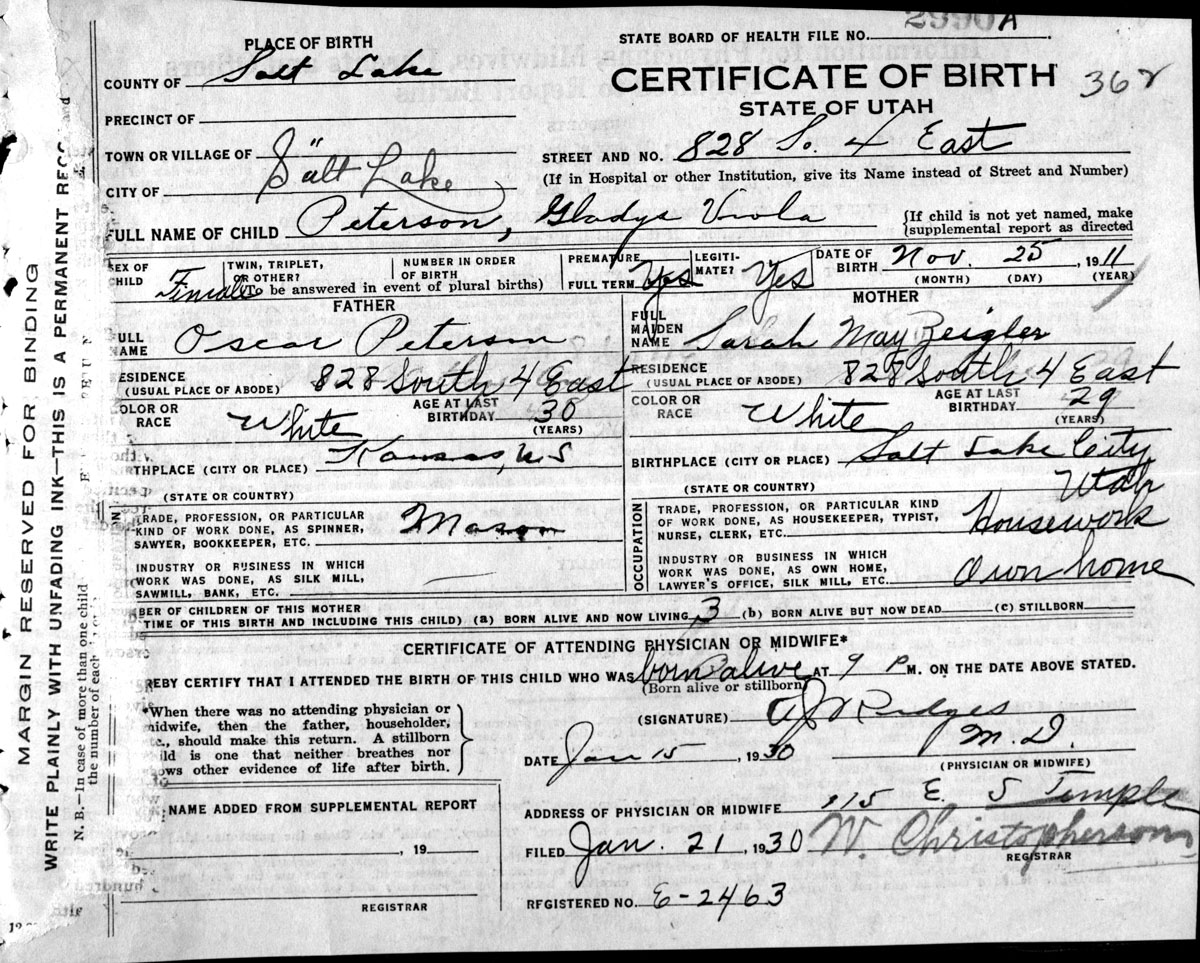 2990A
STATE BOARD OF HEALTH FILE NO.
PLACE OF BIRTH
COUNTY OF Salt Lake
CERTIFICATE OF BIRTH 362
STATE OF UTAH
PRECINCT OF
TOWN OR VILLAGE OF "
STREET AND NO. 828 So. 4 East
CITY OF Salt Lake
(If in Hospital or other Institution, give its Name instead of Street and Number)
FULL NAME OF CHILD Peterson, Gladys Viola
{If child is not yet named, make
supplemental report as directed
SEX OF CHILD Female
TWIN, TRIPLET, OR OTHER?
NUMBER IN ORDER OF BIRTH
(To be answered in event of plural births)
PREMATURE
FULL TERM Yes
LEGITI-MATE? Yes
DATE OF BIRTH Nov. 25, 1911
(MONTH) (DAY) (YEAR)
FATHER
FULL NAME Oscar Peterson
RESIDENCE (USUAL PLACE OF ABODE) 828 South 4 East
COLOR OR RACE White
AGE AT LAST BIRTHDAY 30 (YEARS)
BIRTHPLACE (CITY OR PLACE) Kansas, U S
(STATE OR COUNTRY)
TRADE, PROFESSION, OR PARTICULAR
KIND OF WORK DONE, AS SPINNER,
SAWYER, BOOKKEEPER, ETC. Mason
INDUSTRY OR BUSINESS IN WHICH
WORK WAS DONE, AS SILK MILL,
SAWMILL, BANK, ETC. —
MOTHER
FULL MAIDEN NAME Sarah May Zeigler
RESIDENCE (USUAL PLACE OF ABODE) 828 South 4 East
COLOR OR RACE White
AGE AT LAST BIRTHDAY 29 (YEARS)
BIRTHPLACE (CITY OR PLACE) Salt Lake City,
(STATE OR COUNTRY) Utah
OCCUPATION
TRADE, PROFESSION, OR PARTICULAR KIND
OF WORK DONE, AS HOUSEKEEPER, TYPIST,
NURSE, CLERK, ETC. Housework
INDUSTRY OR BUSINESS IN WHICH
WORK WAS DONE, AS OWN HOME,
LAWYER'S OFFICE, SILK MILL, ETC. Own home
BER OF CHILDREN OF THIS MOTHER
TIME OF THIS BIRTH AND INCLUDING THIS CHILD) (a) BORN ALIVE AND NOW LIVING 3 (b) BORN ALIVE BUT NOW DEAD (c) STILLBORN
CERTIFICATE OF ATTENDING PHYSICIAN OR MIDWIFE*
REBY CERTIFY THAT I ATTENDED THE BIRTH OF THIS CHILD WHO WAS born alive AT 9 P M. ON THE DATE ABOVE STATED.
(Born alive or stillborn)
*When there was no attending physician or
midwife, then the father, householder,
etc., should make this return. A stillborn
ild is one that neither breathes nor
ows other evidence of life after birth.
(SIGNATURE) Ridges
M.D.
DATE Jan 15, 1930
(PHYSICIAN OR MIDWIFE)
NAME ADDED FROM SUPPLEMENTAL REPORT
, 19
REGISTRAR
ADDRESS OF PHYSICIAN OR MIDWIFE 115 E. S Temple
FILED Jan. 21, 1930 W. Christopherson
REGISTRAR
REGISTERED NO. E-2463
MARGIN RESERVED FOR BINDING
WRITE PLAINLY WITH UNFADING INK—THIS IS A PERMANENT REC
N. B.—In case of more than one child
the number of each